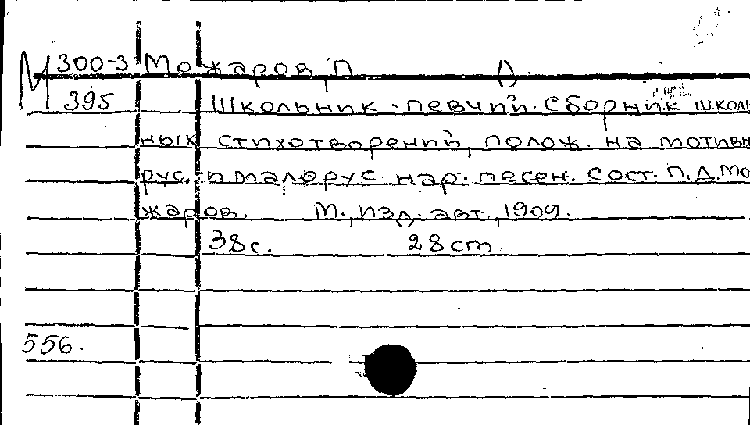 М 300-3 Можаров, П ()
395 Школьник-певчий. Сборник школь
ных стихотворений, полож. на мотивы
рус. и малорус. нар. песен. Сост. П.Д. Мо
жаров. М., изд. авт., 1909.
38 с. 28 cm
556.